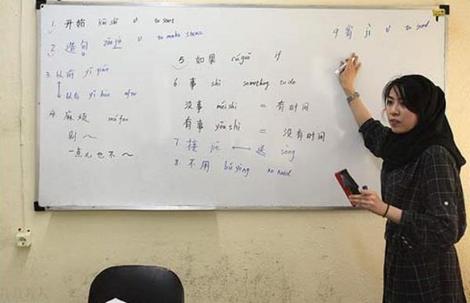 1. 开始 kāi shǐ v to start
2. 造句 zào jù v to make sentence
3. 以前 yǐ qián
以后 yǐ hòu after
4. 麻烦 má fan
别～
一点儿也不～
5 如果 rúguǒ if
6. 事 shì something to do
没事 méi shì = 有时间
有事 yǒu shì = 没有时间
7 接 jiē 送 sòng
8. 不用 bú yòng no need
9 寄 jì v to send